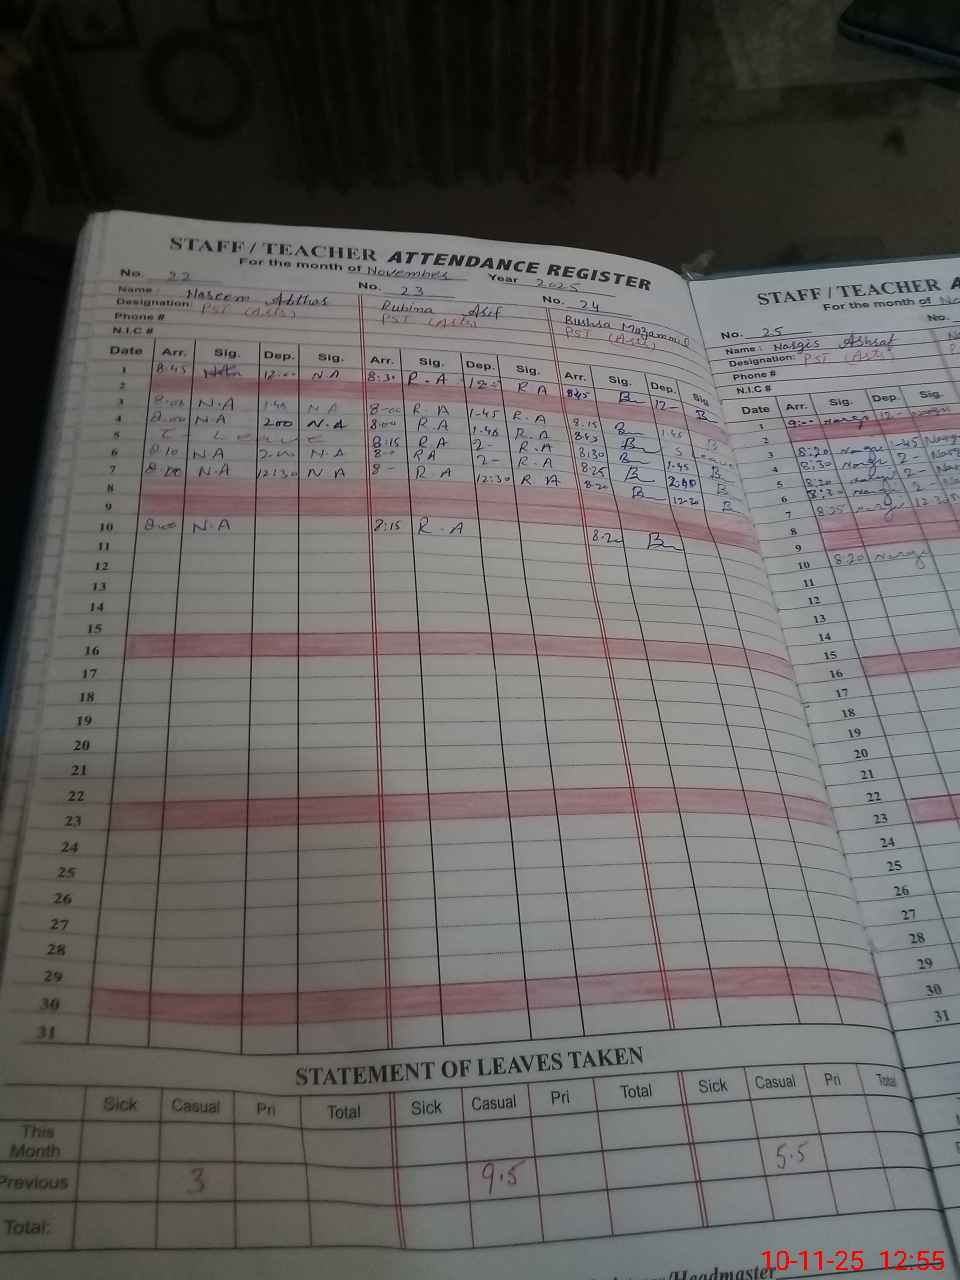 STAFF / TEACHER ATTENDANCE REGISTER
For the month of November Year 2025
No. 22 No. 23 No. 24
Name : Naseem Abthas Rubina Asif Bushra Mozammil
Designation: PST (Arts) PST (Arts) PST (Arts)
Phone #
N.I.C #
Date Arr. Sig. Dep. Sig. Arr. Sig. Dep. Sig. Arr. Sig. Dep. Sig
1 8:45 12:00 N.A 8:30 R.A 12:00 R A 8:45 B 12- B
2
3 8:00 N.A 1:45 N A 8:00 R.A 1-45 R.A 8:15 B 1:45 B
4 8:00 N.A 2:00 N.A 8:00 R.A 1-45 R.A B
5 C - Leave 8:15 RA 2- R.A 8:30 B
6 8:10 N A 2:00 N.A 8:0 RA 2- R.A 8:25 B B
7 8:00 N.A 12:30 N A 8- R.A 12:30 R A 8:20 B 12:30 B
8
9
10 8:00 N.A 8:15 R.A 8:20 B
11
12
13
14
15
16
17
18
19
20
21
22
23
24
25
26
27
28
29
30
31
STATEMENT OF LEAVES TAKEN
Sick Casual Pri Total Sick Casual Pri Total Sick Casual Pri Total
This Month
Previous 3 9.5 5.5
Total:
/Headmaster
STAFF / TEACHER A
For the month of No
No. 25 No.
Name : Nargis Ashraf
Designation: PST (Arts)
Phone #
N.I.C #
Date Arr. Sig. Dep. Sig.
1 9:00 Nargis 12- Nargis
2
3 8:20 Nargis 1-45 Narg
4 8:30 Nargis 2- Nar
5 8:20 Nargis 2- Nar
6 8:30 Nargis 2- Nar
7 8:25 Nargis 12:30
8
9
10 8:20 Nargis
11
12
13
14
15
16
17
18
19
20
21
22
23
24
25
26
27
28
29
30
31
10-11-25 12:55